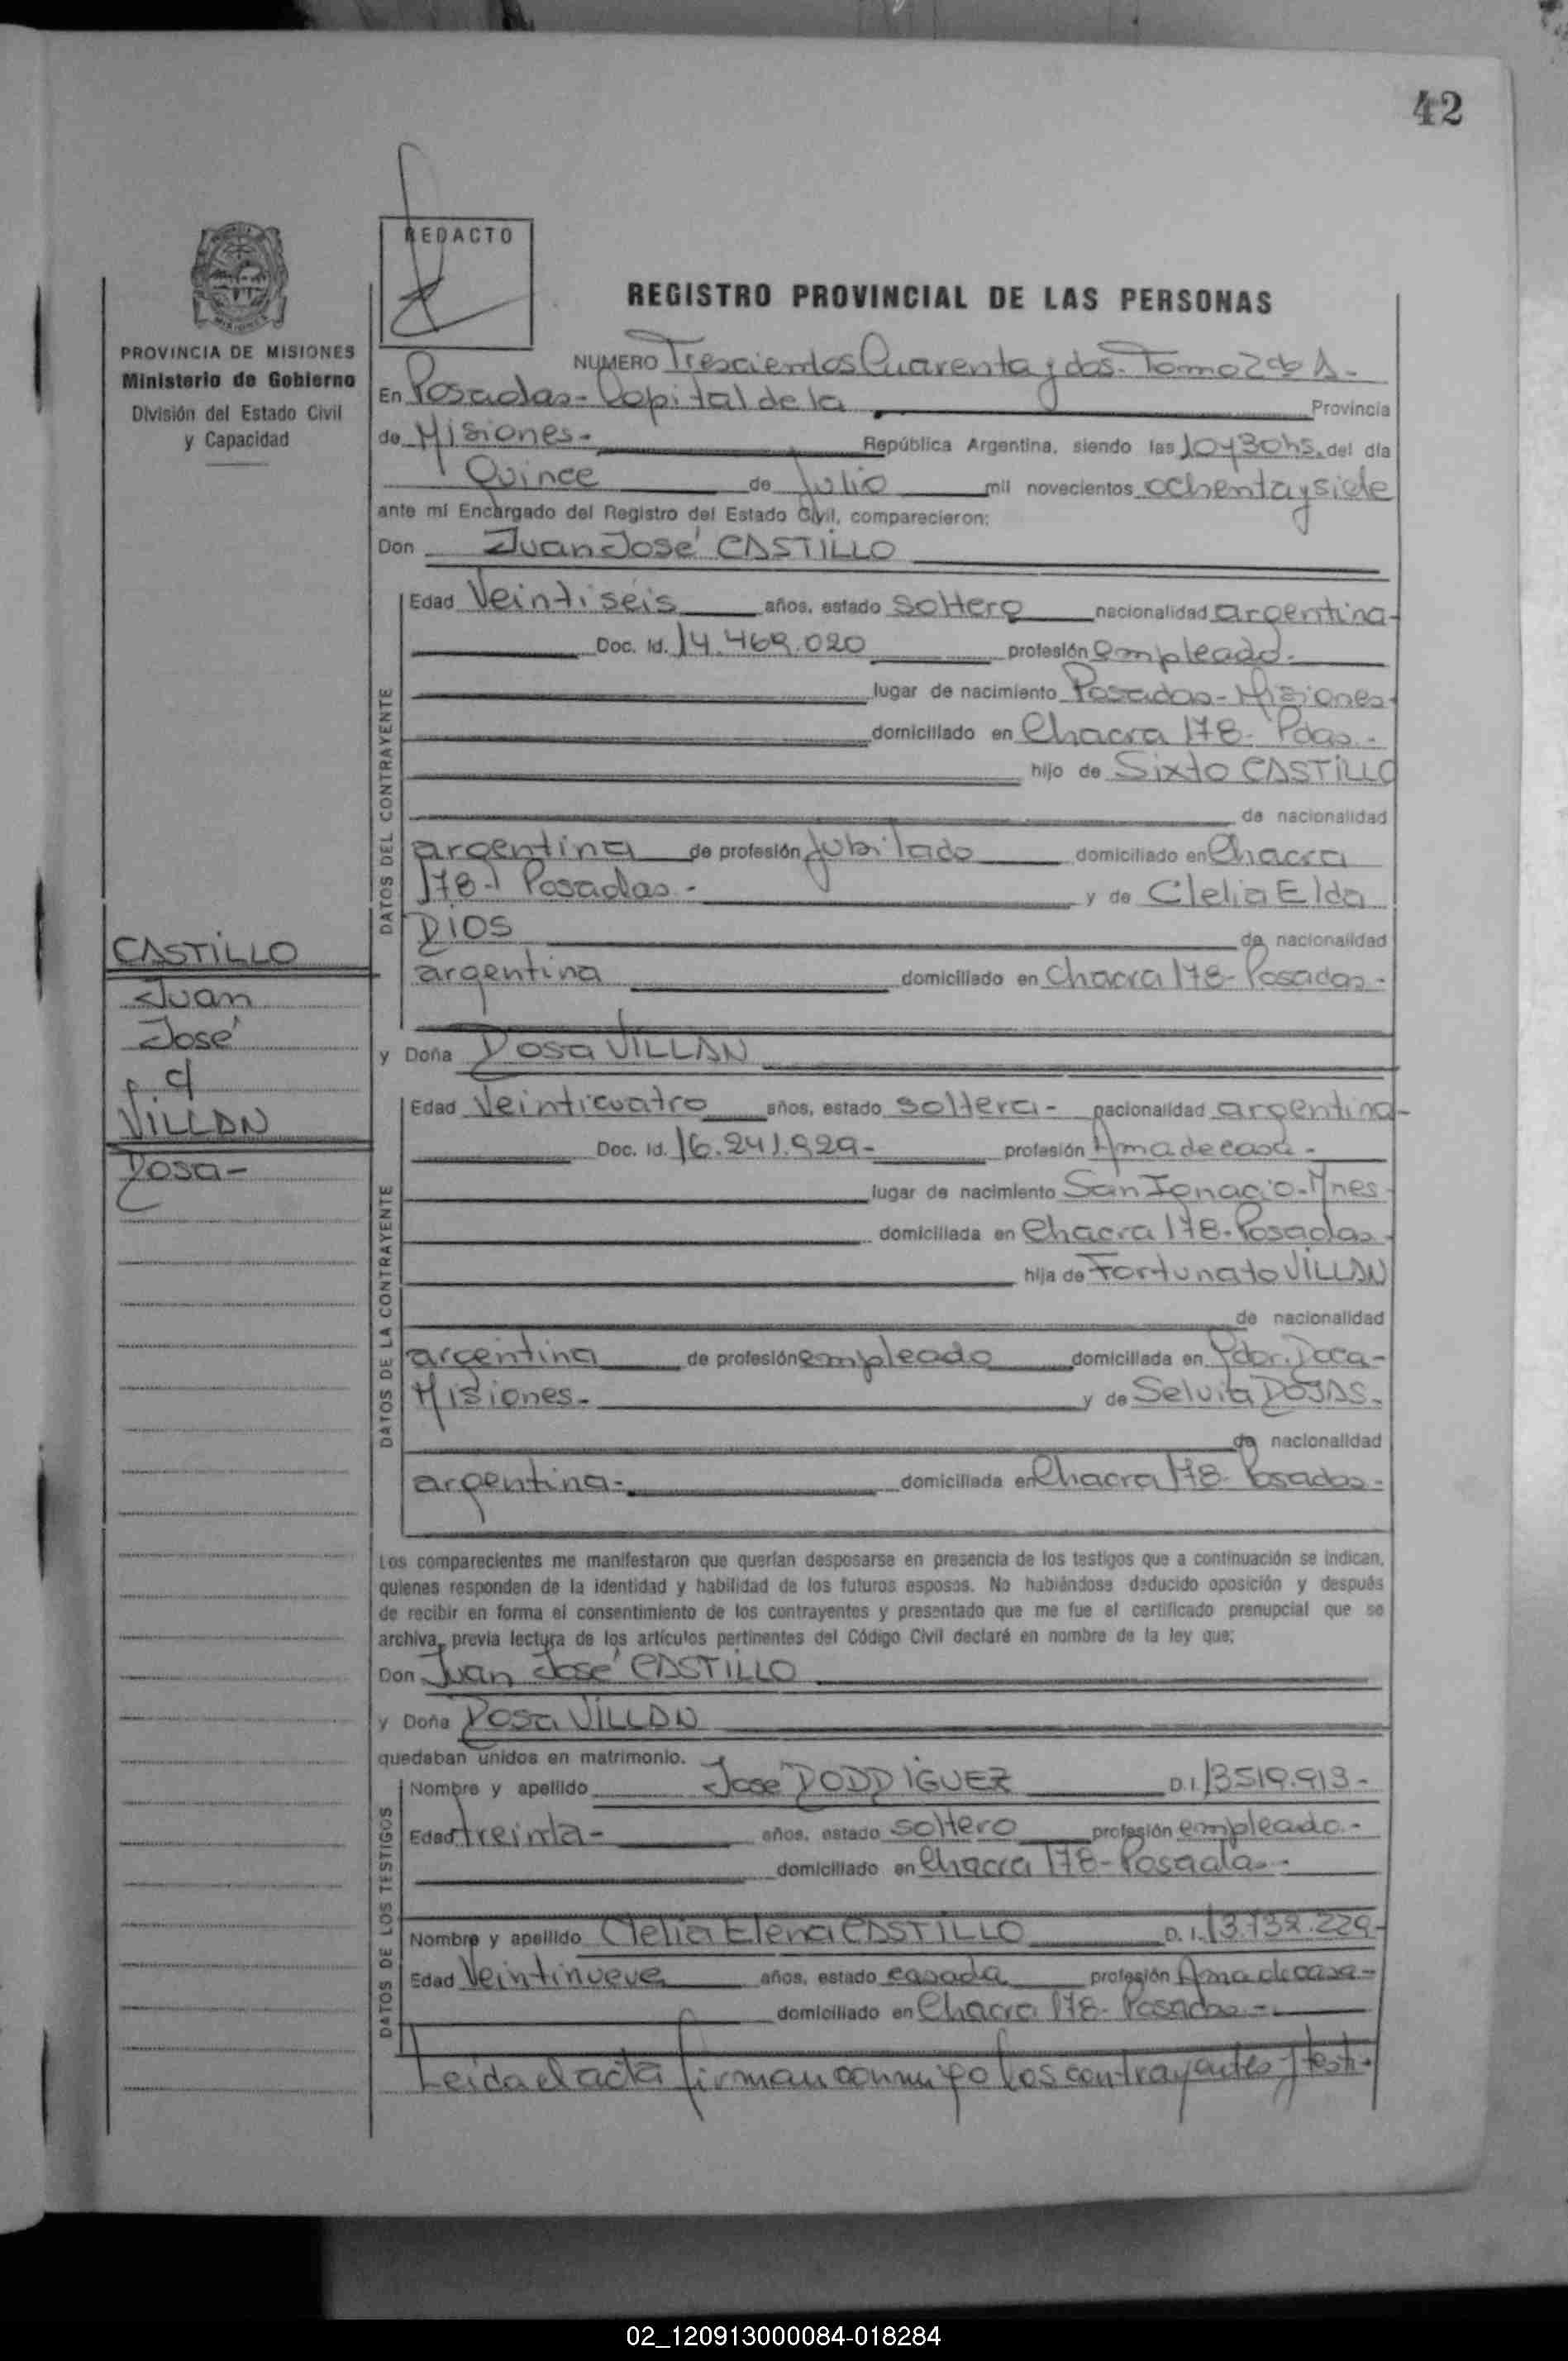 42
REDACTO
PROVINCIA DE MISIONES
Ministerio de Gobierno
División del Estado Civil
y Capacidad
CASTILLO
Juan
José
c/
VILLAN
Rosa-
REGISTRO PROVINCIAL DE LAS PERSONAS
NUMERO Trescientos Cuarenta y dos- Tomo 2do A-
En Posadas- Capital de la Provincia
de Misiones- República Argentina, siendo las 10y30hs. del día
Quince de Julio mil novecientos ochenta y siete
ante mí Encargado del Registro del Estado Civil, comparecieron:
Don Juan José CASTILLO
DATOS DEL CONTRAYENTE
Edad Veintiseis años, estado soltero nacionalidad argentina-
Doc. Id. 14.469.020 profesión empleado-
lugar de nacimiento Posadas-Misiones
domiciliado en Chacra 178- Pdas.-
hijo de Sixto CASTILLO
de nacionalidad
argentina de profesión Jubilado domiciliado en Chacra
178- Posadas- y de Clelia Elda
RIOS de nacionalidad
argentina domiciliado en Chacra 178-Posadas-
y Doña Rosa VILLAN
DATOS DE LA CONTRAYENTE
Edad Veinticuatro años, estado soltera- nacionalidad argentina-
Doc. Id. 16.241.929- profesión Ama de casa-
lugar de nacimiento San Ignacio-Mnes
domiciliada en Chacra 178-Posadas-
hija de Fortunato VILLAN
de nacionalidad
argentina de profesión empleado domiciliada en Pdor. Roca-
Misiones- y de Selvia ROJAS-
de nacionalidad
argentina- domiciliada en Chacra 178- Posadas-
Los comparecientes me manifestaron que querían desposarse en presencia de los testigos que a continuación se indican,
quienes responden de la identidad y habilidad de los futuros esposos. No habiéndose deducido oposición y después
de recibir en forma el consentimiento de los contrayentes y presentado que me fue el certificado prenupcial que se
archiva, previa lectura de los artículos pertinentes del Código Civil declaré en nombre de la ley que;
Don Juan José CASTILLO
y Doña Rosa VILLAN
quedaban unidos en matrimonio.
DATOS DE LOS TESTIGOS
Nombre y apellido José RODRIGUEZ D.I. 13519.913-
Edad treinta- años, estado soltero profesión empleado-
domiciliado en Chacra 178-Posadas-
Nombre y apellido Clelia Elena CASTILLO D.I. 13.732.229-
Edad Veintinueve años, estado casada profesión Ama de casa-
domiciliado en Chacra 178- Posadas-
Leida el acta firman conmigo los contrayentes y testi-
02_120913000084-018284